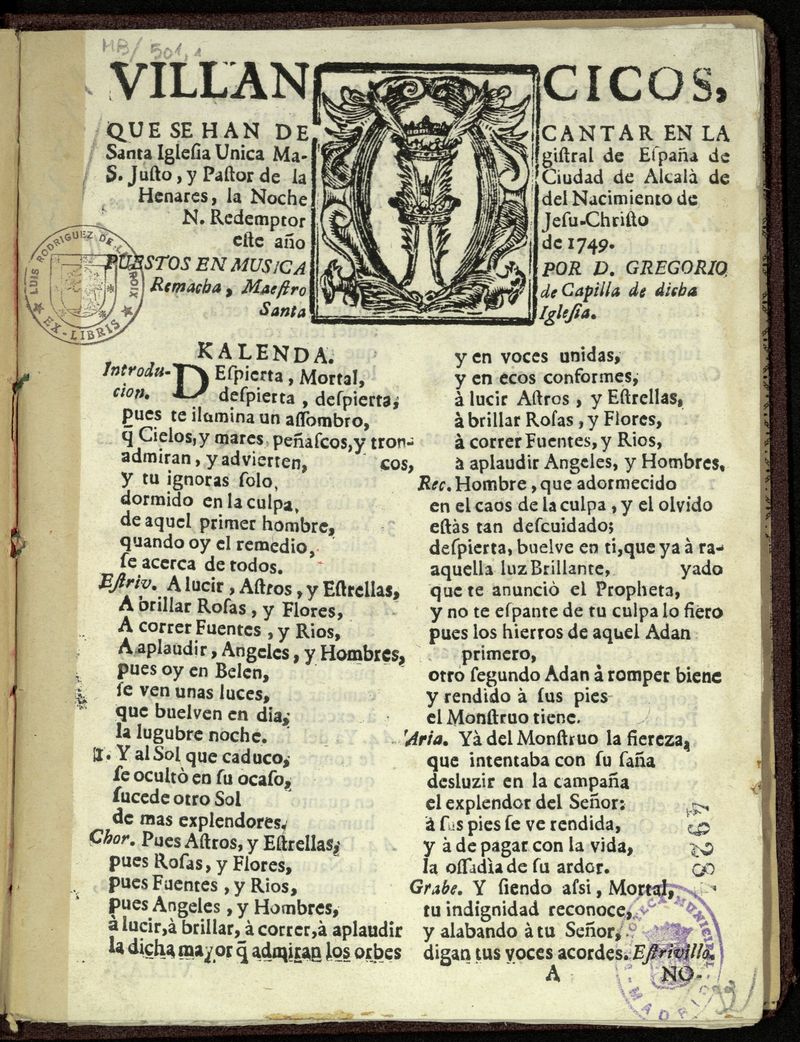 MB/501,1
VILLANCICOS,
QUE SE HAN DE CANTAR EN LA
Santa Iglesia Unica Magistral de España de
S. Justo, y Pastor de la Ciudad de Alcalà de
Henares, la Noche del Nacimiento de
N. Redemptor Jesu-Christo
este año de 1749.
PUESTOS EN MUSICA POR D. GREGORIO
Remacha, Maestro de Capilla de dicha
Santa Iglesia.
LUIS RODRIGUEZ DE LA CROIX
EX-LIBRIS
KALENDA.
Introducion. DEspierta, Mortal,
despierta, despierta;
pues te ilumina un assombro,
q̃ Cielos, y mares, peñascos, y troncos,
admiran, y advierten,
y tu ignoras solo,
dormido en la culpa,
de aquel primer hombre,
quando oy el remedio,
se acerca de todos.
Estriv. A lucir, Astros, y Estrellas,
A brillar Rosas, y Flores,
A correr Fuentes, y Rios,
A aplaudir, Angeles, y Hombres,
pues oy en Belen,
se ven unas luces,
que buelven en dia;
la lugubre noche.
1. Y al Sol que caduco,
se ocultò en su ocaso,
sucede otro Sol
de mas explendores.
Chor. Pues Astros, y Estrellas,
pues Rosas, y Flores,
pues Fuentes, y Rios,
pues Angeles, y Hombres,
à lucir, à brillar, à correr, à aplaudir
la dicha mayor q̃ admiran los orbes
y en voces unidas,
y en ecos conformes,
à lucir Astros, y Estrellas,
à brillar Rosas, y Flores,
à correr Fuentes, y Rios,
à aplaudir Angeles, y Hombres.
Rec. Hombre, que adormecido
en el caos de la culpa, y el olvido
estàs tan descuidado;
despierta, buelve en ti, que ya à rayado
aquella luz Brillante,
que te anunciò el Propheta,
y no te espante de tu culpa lo fiero
pues los hierros de aquel Adan
primero,
otro segundo Adan à romper biene
y rendido à sus pies
el Monstruo tiene.
Aria. Yà del Monstruo la fiereza,
que intentaba con su saña
desluzir en la campaña
el explendor del Señor:
à sus pies se ve rendida,
y à de pagar con la vida,
la ossadìa de su ardor.
Grabe. Y siendo assi, Mortal,
tu indignidad reconoce,
y alabando à tu Señor,
digan tus voces acordes. Estrivillo.
A NO-
BIBLIOTECA MUNICIPAL
MADRID